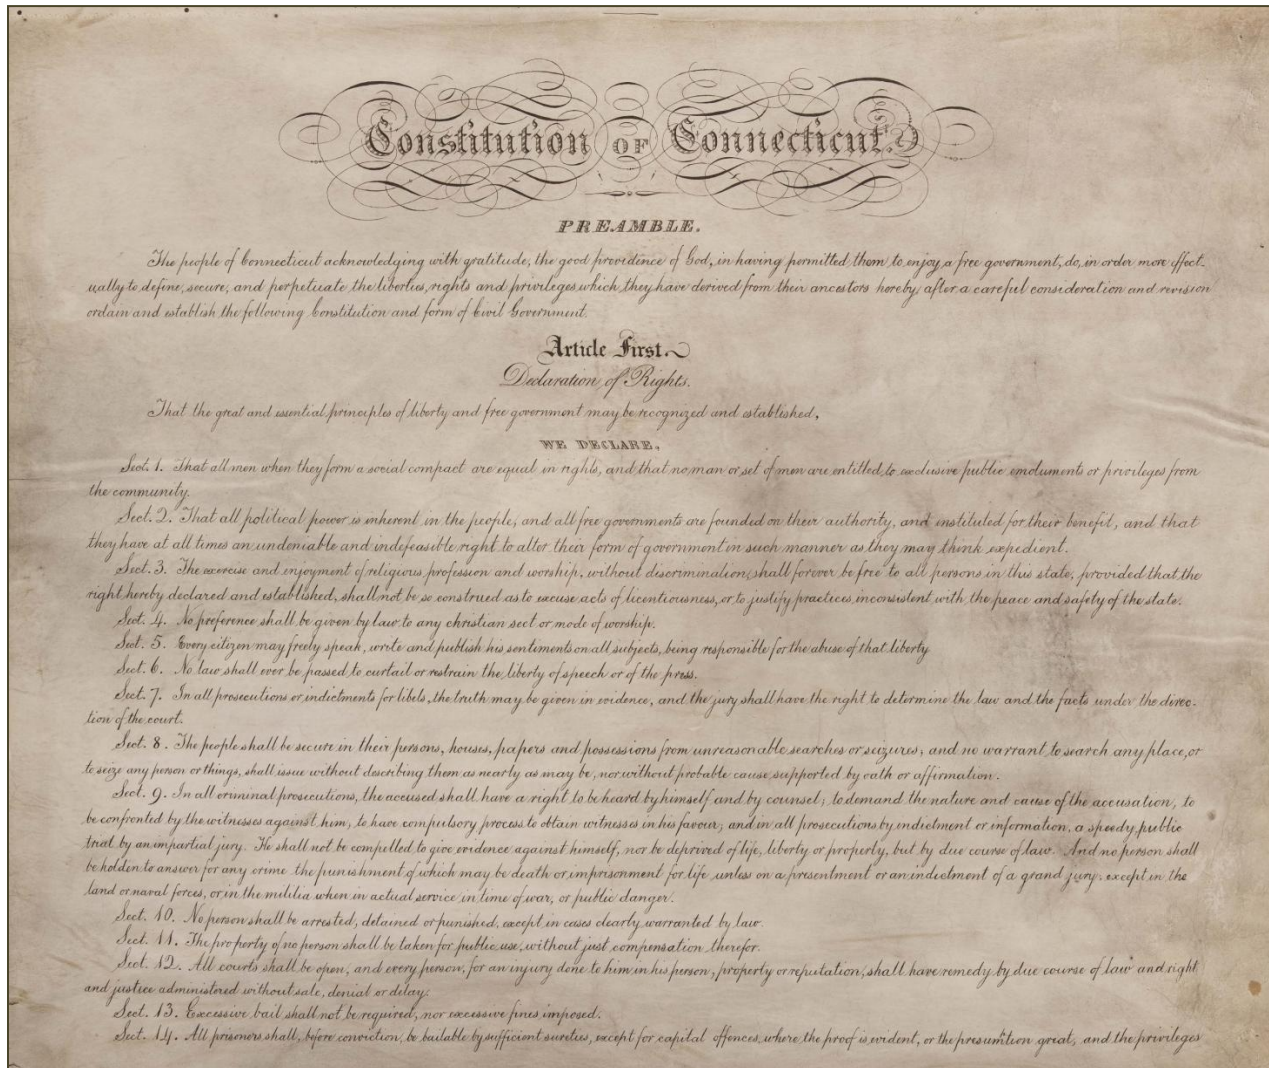 Constitution OF Connecticut.
PREAMBLE.
The people of Connecticut acknowledging with gratitude, the good providence of God, in having permitted them to enjoy a free government, do, in order more effect-
ually to define, secure, and perpetuate the liberties, rights and privileges which they have derived from their ancestors hereby, after a careful consideration and revision
ordain and establish the following Constitution and form of Civil Government.
Article First.
Declaration of Rights.
That the great and essential principles of liberty and free government may be recognized and established,
WE DECLARE,
Sect. 1. That all men when they form a social compact are equal in rights, and that no man or set of men are entitled to exclusive public emoluments or privileges from
the community.
Sect. 2. That all political power is inherent in the people, and all free governments are founded on their authority, and instituted for their benefit, and that
they have at all times an undeniable and indefeasible right to alter their form of government in such manner as they may think expedient.
Sect. 3. The exercise and enjoyment of religious profession and worship, without discrimination, shall forever be free to all persons in this state, provided that the
right hereby declared and established, shall not be so construed as to excuse acts of licentiousness, or to justify practices inconsistent with the peace and safety of the state.
Sect. 4. No preference shall be given by law to any christian sect or mode of worship.
Sect. 5. Every citizen may freely speak, write and publish his sentiments on all subjects, being responsible for the abuse of that liberty
Sect. 6. No law shall ever be passed to curtail or restrain the liberty of speech or of the press.
Sect. 7. In all prosecutions or indictments for libels, the truth may be given in evidence, and the jury shall have the right to determine the law and the facts under the direc-
tion of the court.
Sect. 8. The people shall be secure in their persons, houses, papers and possessions from unreasonable searches or seizures; and no warrant to search any place, or
to seize any person or things, shall issue without describing them as nearly as may be, nor without probable cause supported by oath or affirmation.
Sect. 9. In all criminal prosecutions, the accused shall have a right to be heard by himself and by counsel; to demand the nature and cause of the accusation, to
be confronted by the witnesses against him; to have compulsory process to obtain witnesses in his favour; and in all prosecutions by indictment or information, a speedy, public
trial by an impartial jury. He shall not be compelled to give evidence against himself, nor be deprived of life, liberty or property, but by due course of law. And no person shall
be holden to answer for any crime the punishment of which may be death or imprisonment for life unless on a presentment or an indictment of a grand jury: except in the
land or naval forces, or in the militia when in actual service in time of war, or public danger.
Sect. 10. No person shall be arrested, detained or punished, except in cases clearly warranted by law.
Sect. 11. The property of no person shall be taken for public use, without just compensation therefor.
Sect. 12. All courts shall be open, and every person, for an injury done to him in his person, property or reputation, shall have remedy by due course of law and right
and justice administered without sale, denial or delay.
Sect. 13. Excessive bail shall not be required, nor excessive fines imposed.
Sect. 14. All prisoners shall, before conviction, be bailable by sufficient sureties, except for capital offences, where the proof is evident, or the presumption great; and the privileges